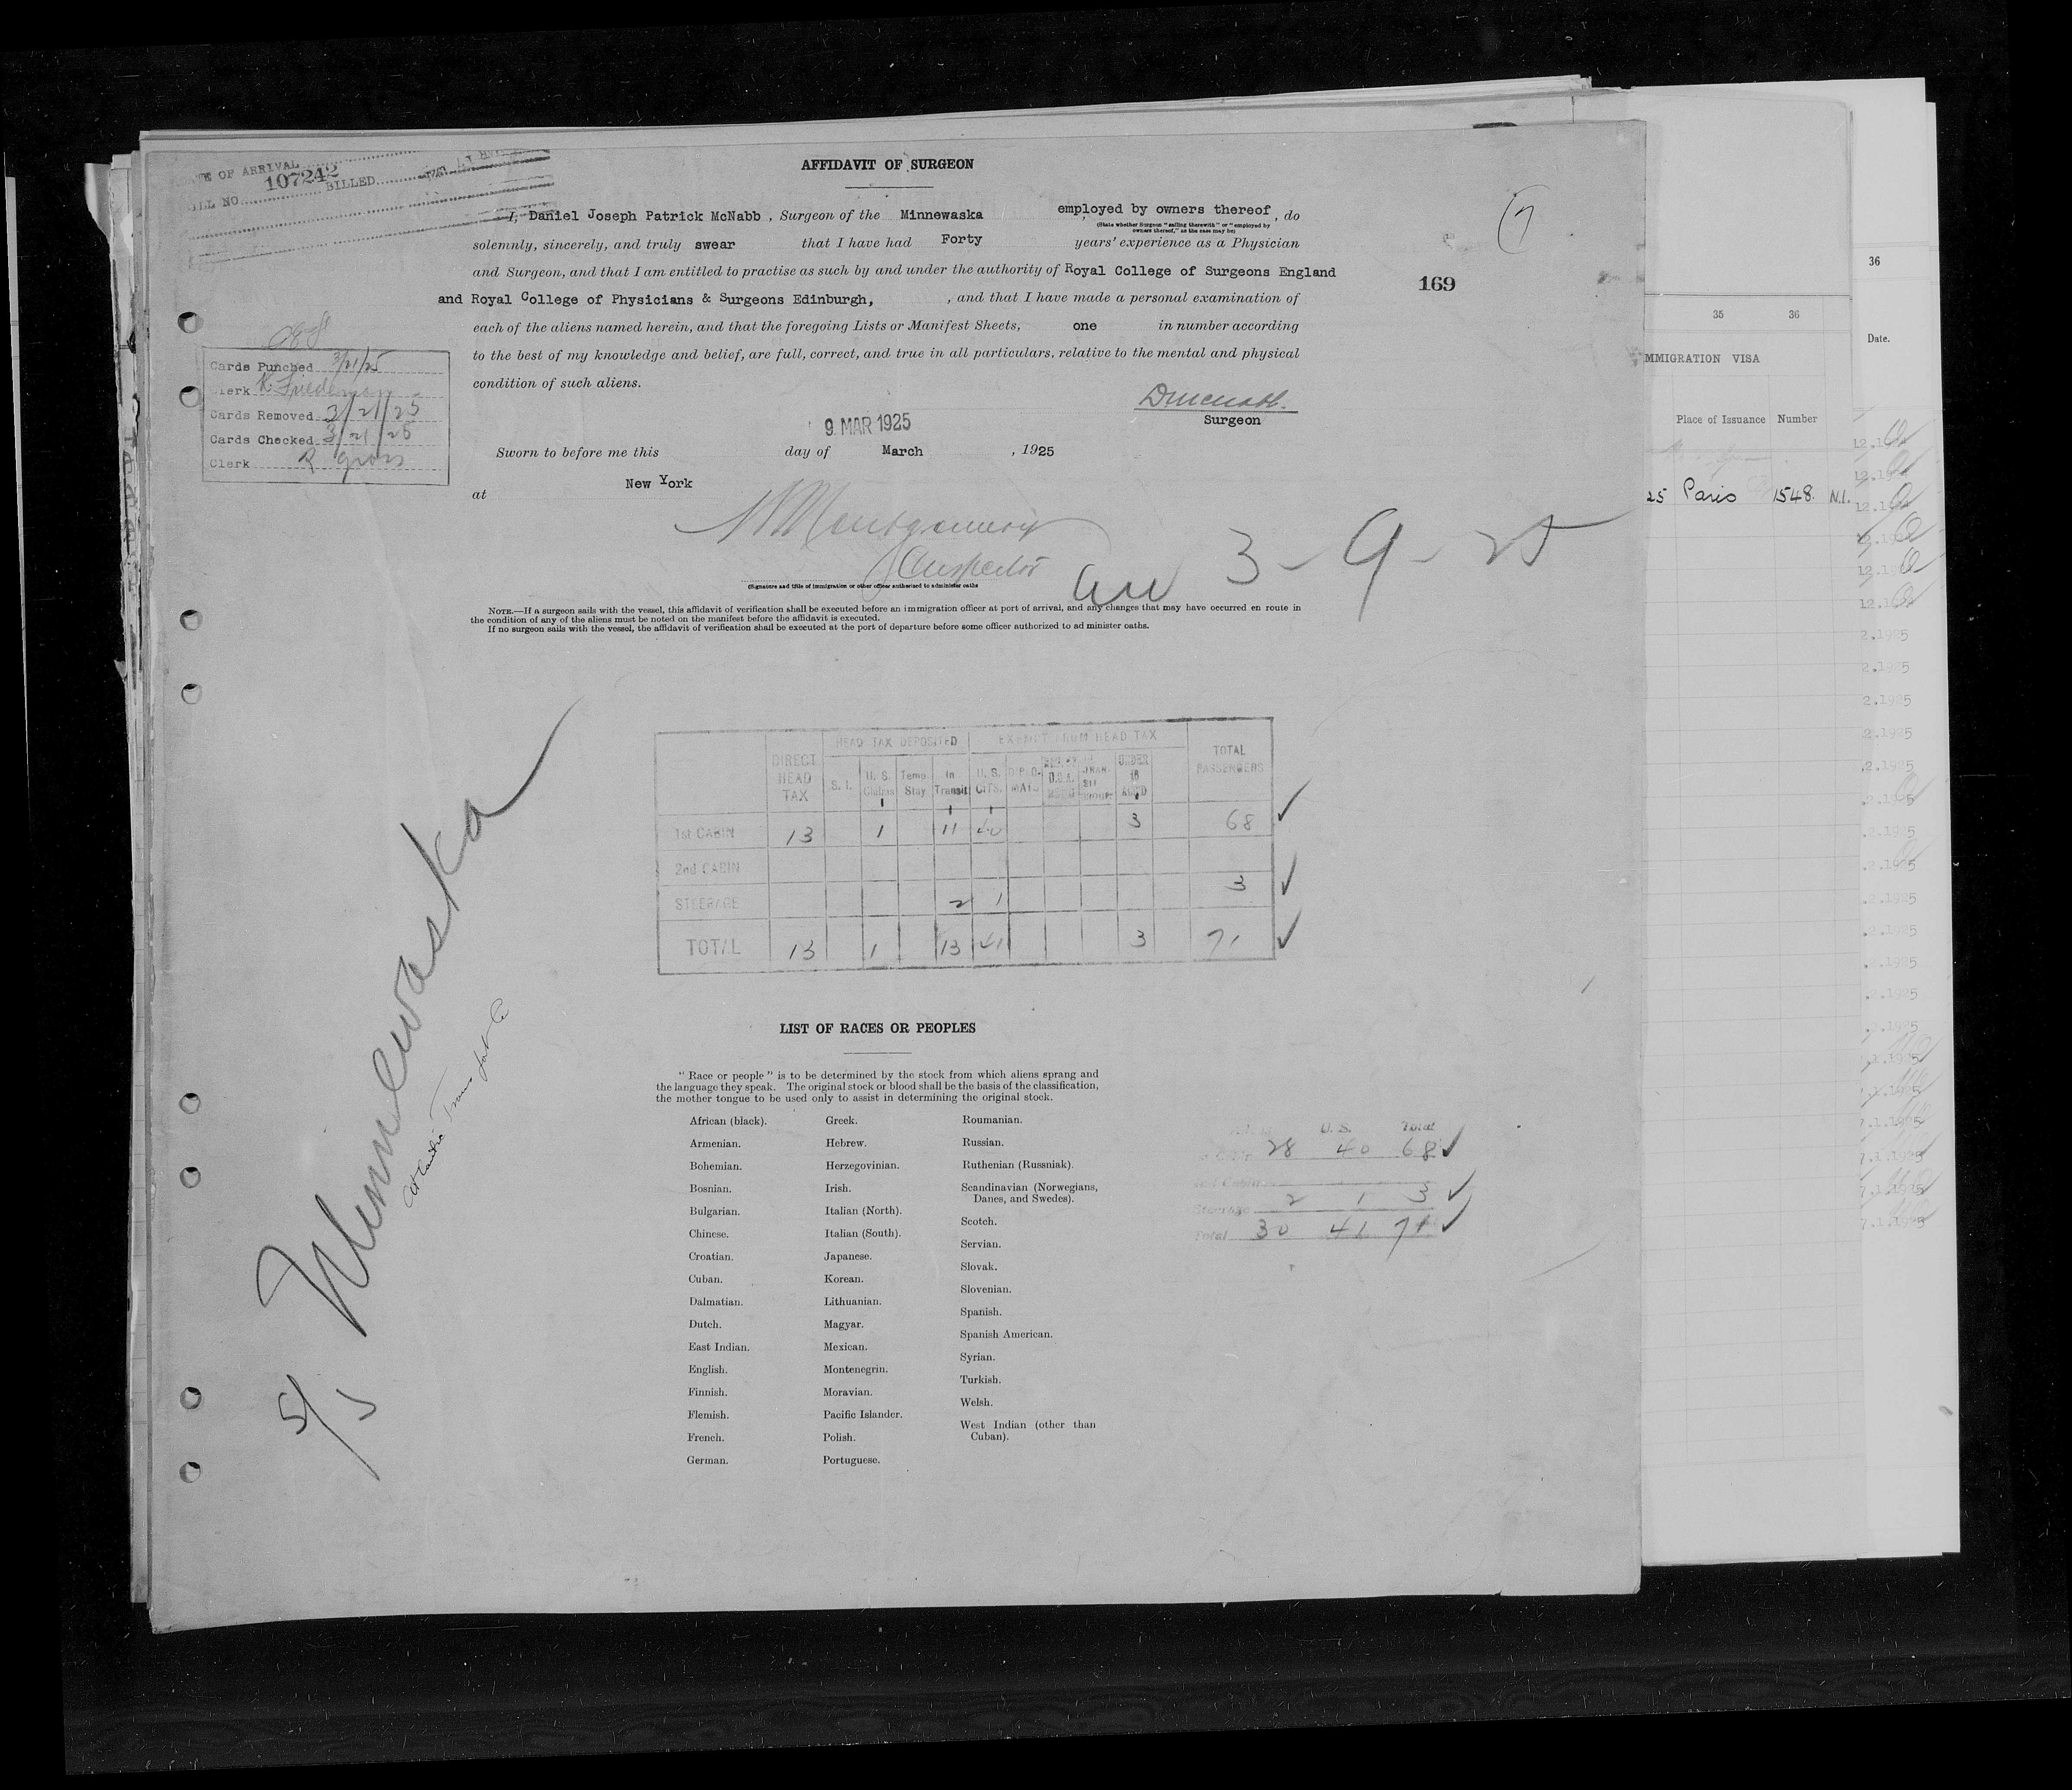 DATE OF ARRIVAL
BILL NO. 107242 BILLED
AFFIDAVIT OF SURGEON
I, Daniel Joseph Patrick McNabb, Surgeon of the Minnewaska employed by owners thereof, do
(State whether Surgeon "sailing therewith" or "employed by
owners thereof," as the case may be)
solemnly, sincerely, and truly swear that I have had Forty years' experience as a Physician
and Surgeon, and that I am entitled to practise as such by and under the authority of Royal College of Surgeons England
and Royal College of Physicians & Surgeons Edinburgh, , and that I have made a personal examination of
each of the aliens named herein, and that the foregoing Lists or Manifest Sheets, one in number according
to the best of my knowledge and belief, are full, correct, and true in all particulars, relative to the mental and physical
condition of such aliens.
169
DMcNabb.
Surgeon
9 MAR 1925
Sworn to before me this day of March , 1925
at New York
Montgomery
Inspector
3-9-25
(Signature and title of immigration or other officer authorized to administer oaths
NOTE.—If a surgeon sails with the vessel, this affidavit of verification shall be executed before an immigration officer at port of arrival, and any changes that may have occurred en route in
the condition of any of the aliens must be noted on the manifest before the affidavit is executed.
If no surgeon sails with the vessel, the affidavit of verification shall be executed at the port of departure before some officer authorized to ad minister oaths.
Cards Punched 3/21/25
Clerk K. Friedman
Cards Removed 3/21/25
Cards Checked 3/21/25
Clerk R Gross
S/S Minnewaska
Atlantic Transport Co
DIRECT HEAD TAX
HEAD TAX DEPOSITED
EXEMPT FROM HEAD TAX
TOTAL PASSENGERS
S. I. U. S. Claims Temp. Stay In Transit U. S. CITS. DIPLO-MAT UNDER 16 ACC'D
1st CABIN 13 1 11 40 3 68
2nd CABIN
STEERAGE 2 1 3
TOTAL 13 1 13 41 3 71
LIST OF RACES OR PEOPLES
"Race or people" is to be determined by the stock from which aliens sprang and
the language they speak. The original stock or blood shall be the basis of the classification,
the mother tongue to be used only to assist in determining the original stock.
African (black).
Armenian.
Bohemian.
Bosnian.
Bulgarian.
Chinese.
Croatian.
Cuban.
Dalmatian.
Dutch.
East Indian.
English.
Finnish.
Flemish.
French.
German.
Greek.
Hebrew.
Herzegovinian.
Irish.
Italian (North).
Italian (South).
Japanese.
Korean.
Lithuanian.
Magyar.
Mexican.
Montenegrin.
Moravian.
Pacific Islander.
Polish.
Portuguese.
Roumanian.
Russian.
Ruthenian (Russniak).
Scandinavian (Norwegians,
Danes, and Swedes).
Scotch.
Servian.
Slovak.
Slovenian.
Spanish.
Spanish American.
Syrian.
Turkish.
Welsh.
West Indian (other than
Cuban).
U. S. Total
28 40 68
2nd Cabin
Steerage 2 1 3
Total 30 41 71
35 36
MMIGRATION VISA
Place of Issuance Number
25 Paris 1548. N.I.
36
Date.